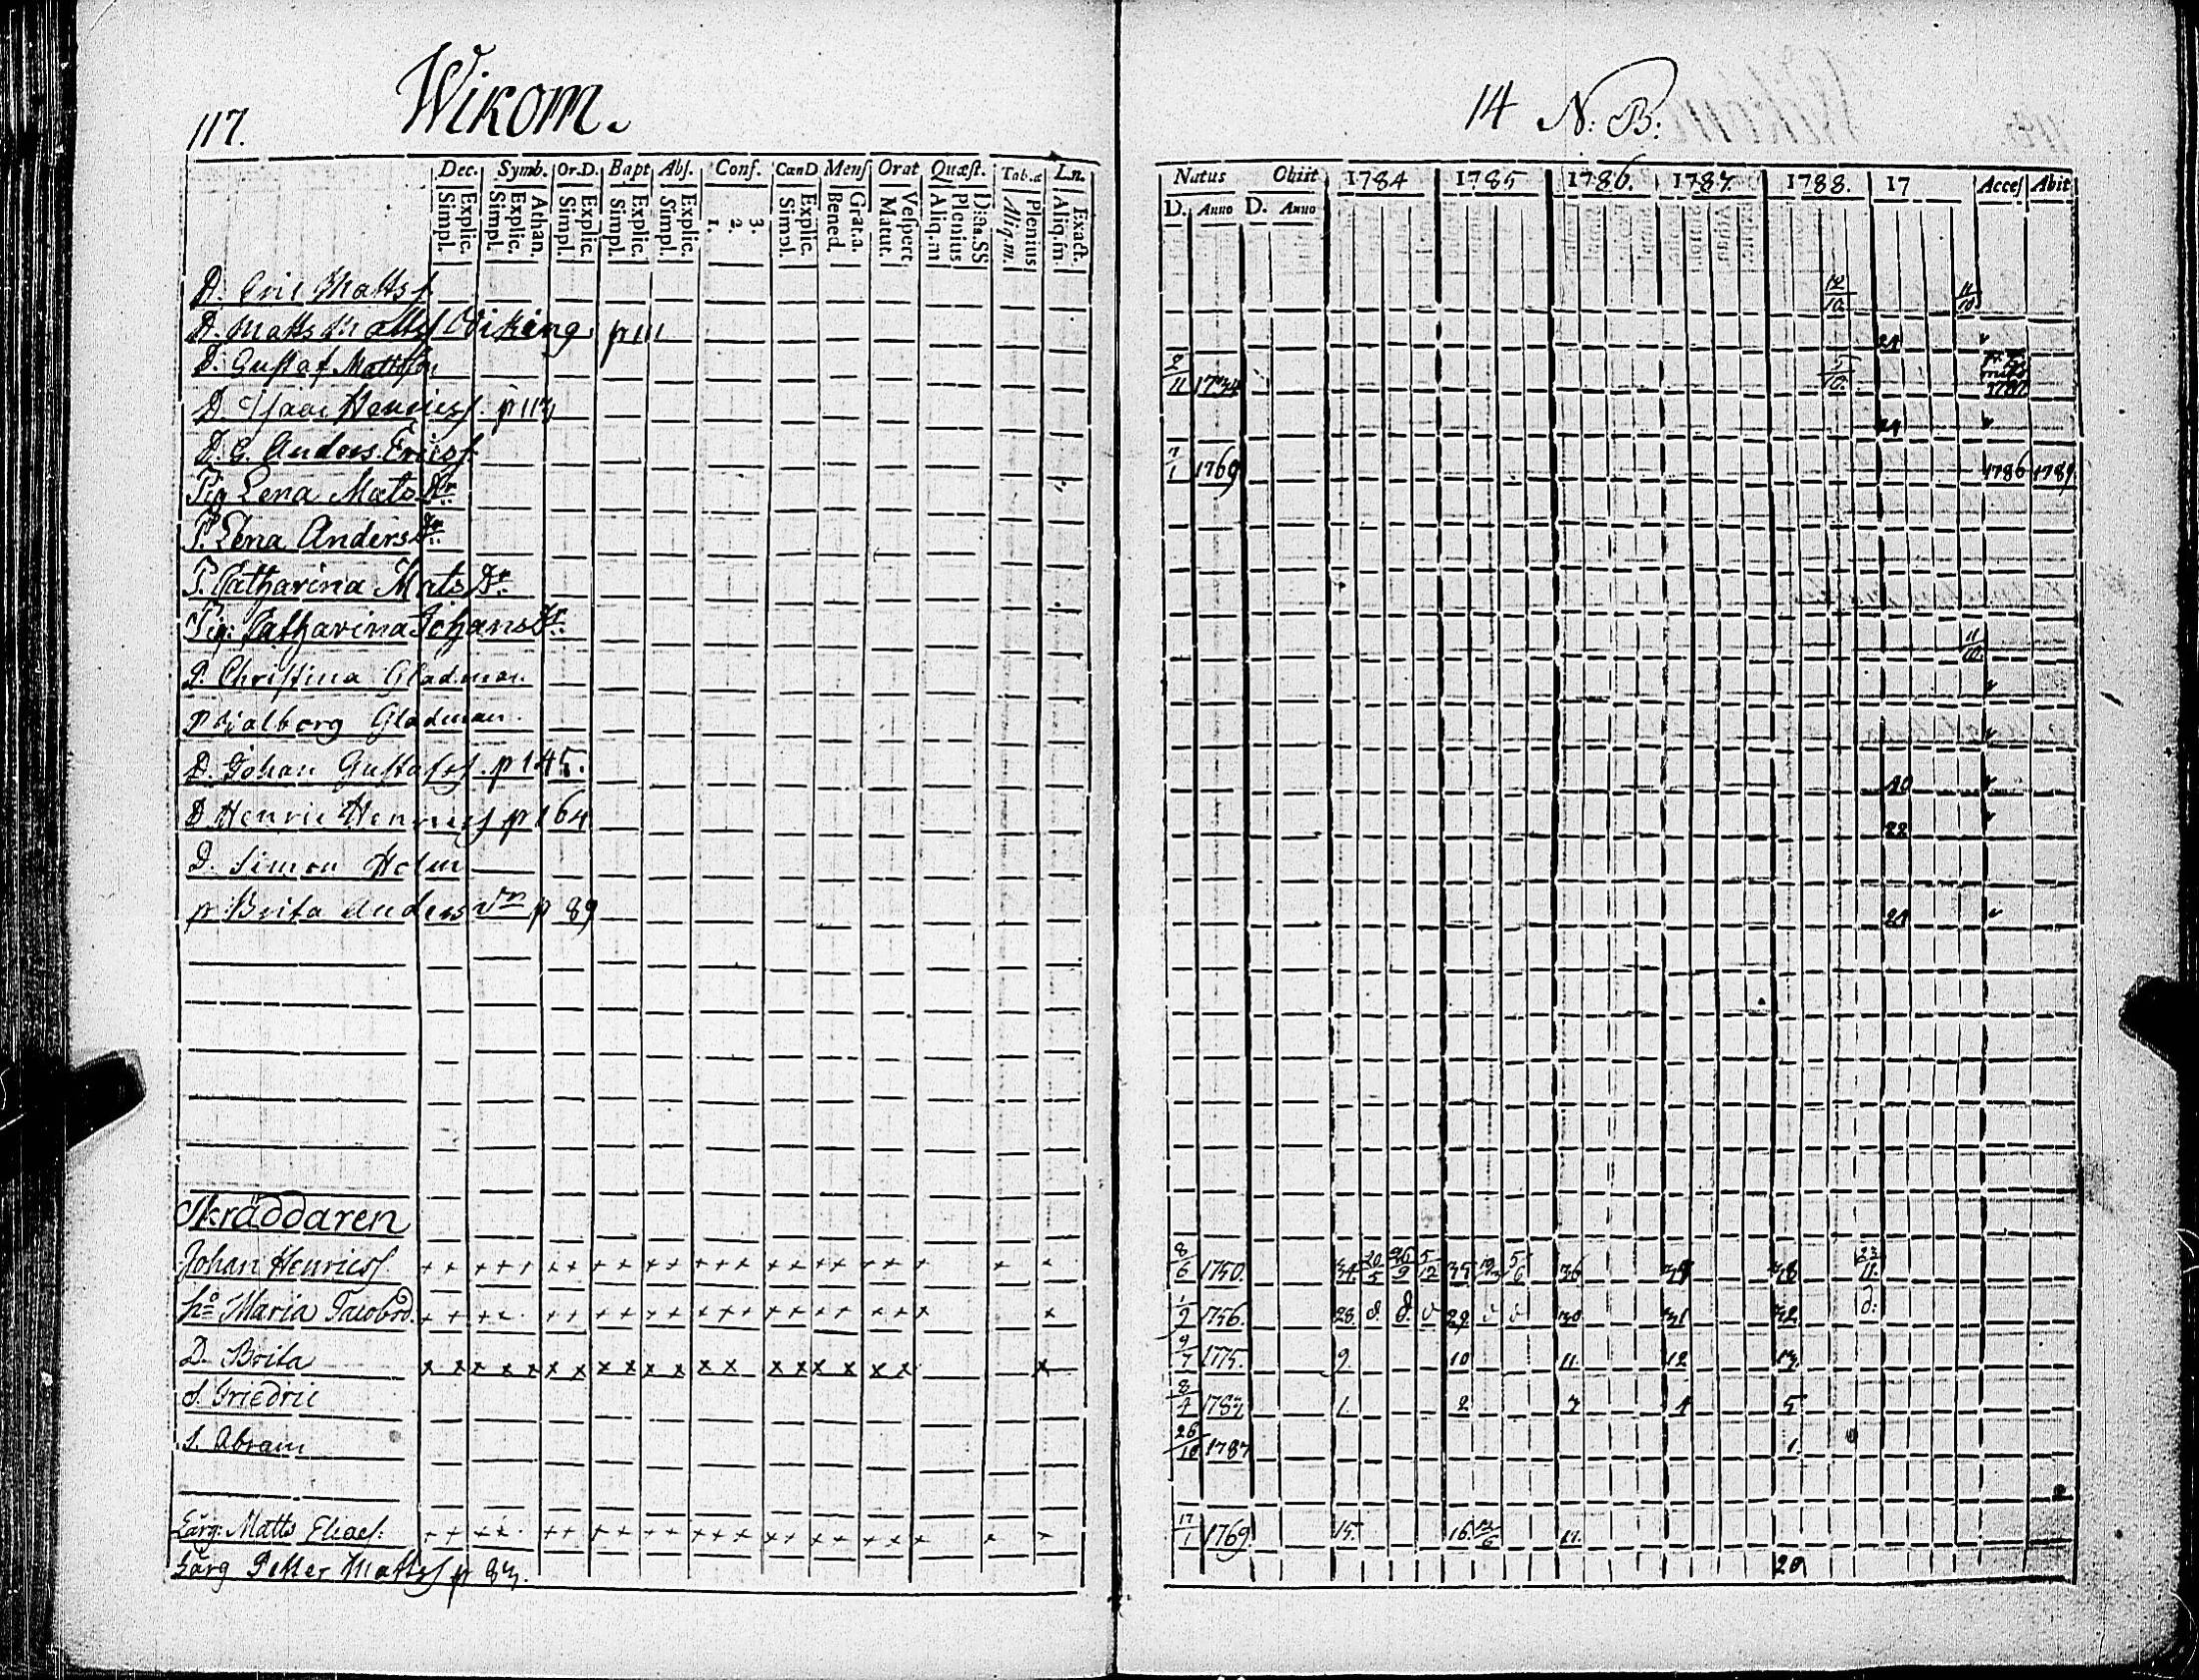 117. Wikom. 14 N: B:
Dec. Symb. Or.D. Bapt Abs. Conf. CœnD Mens Orat Quæst. Tab.æ L.n. Natus Obiit 1784 1785 1786. 1787. 1788. 17 Acces Abit
Simpl. Explic. Simpl. Explic. Athan. Simpl. Explic. Simpl. Explic. Simpl. Explic. 1. 2. 3. Simpl. Explic. Bened. Grat.a. Matut. Vespert Aliq.m Plenius D:a.SS Aliq.m. Plenius Aliq.m. Exact. D. Anno D. Anno
D. Eric Mattss 12/10 11/10
D. Matts Mattss Wiking p 111 24
D. Gustaf Mattson 2/11 1734 5/10.
D. Isaac Henricss. p 113 24
D. G. Anders Ericss 7/1 1769 1786 1789
Pig Lena Mats Dr
P. Lena Anders Dr
P. Catharina Mats Dr
Pig: Catharina Johans Dr. 11/10.
P. Christina Gladman
P Walborg Gladman.
D. Johan Gustafss. p 145. 40
D. Henric Henricss p 164 22
D. Simon Holm
p Brita Anders Dr p 89 24
Skräddaren
Johan Henricss + + + + + + + + + + + + + + + + + + + + + + 8/6 1750. 34 20/5 26/9 5/12 35 5/6 36 38 23/11.
ho Maria Jacobsd. + + + + + + + + + + + + + + + + + + + 1756. 28. d. d. d 29 d d 30 31 32 d:
D. Brita x x x x x x x x x x x x x x x x x x x 9/7 1775. 9. 10 11. 12 13
S. Friedric 8/4 1783 1. 2 3 4 5
S. Abram 26/10 1787 1.
Lärg: Matts Eliaes: + + + + + + + + + + + + + + + + + + + + + 17/1 1769. 15. 16. 17.
Lärg Petter Mattss p 83. 20